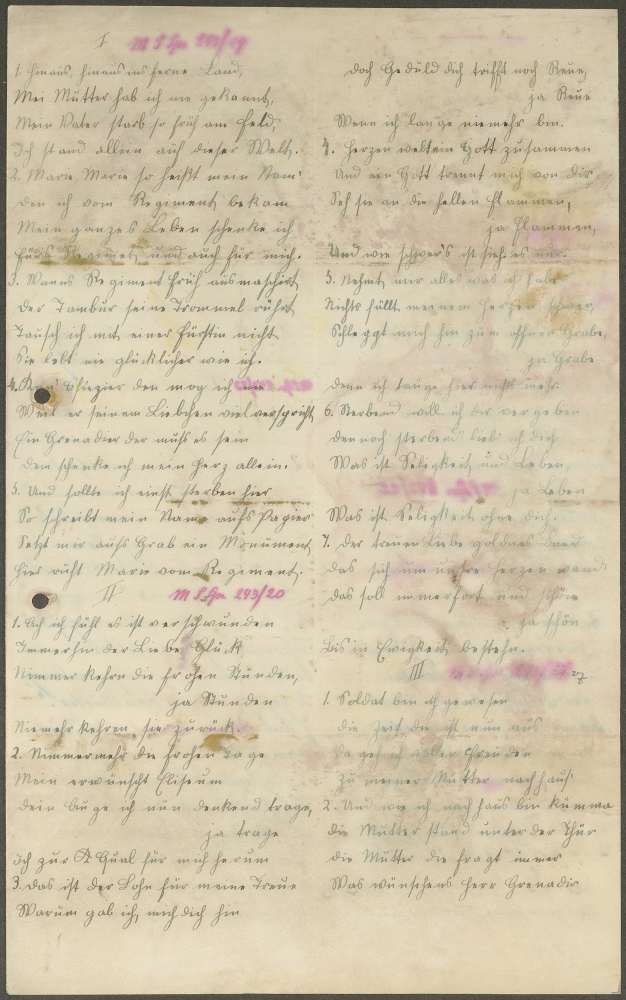 I
1. Hinaus, hinaus ins ferne Land,
Mei Mutter hab ich nie gekannt,
Mein Vater starb so früh am Feld,
Ich stand allein auf dieser Welt.
2. Marie, Marie so heißt mein Nam'
den ich vom Regiment bekam
Mein ganzes Leben schenke ich
fürs Regiment und auch für mich.
3. Wanns Regiment früh ausmaschirt
der Tambur seine Trommel rührt
Tausch ich mit einer Fürstin nicht
Sie lebt nie glücklicher wie ich.
4. Ofizier den mog ich nie
Weil er seinem Liebchen viel verspricht
Ein Grenadier der muß es sein
dem schenke ich mein Herz allein.
5. Und sollte ich einst sterben hier
So schreibt mein Name aufs Papier
Setzt mir aufs Grab ein Monument
Hier ruht Marie vom Regiment.
II M S Gm 293/20
1. Ach ich fühl es ist verschwunden
Immerhin der Liebe Glück
Nimmer kehrn die frohen Stunden,
ja Stunden
Niemehr kehren sie zurück.
2. Nimmermehr die frohen Tage
Mein erwünscht Eliseum
dein Auge ich nun denkend trage,
ja trage
ich zur Qual für mich herum
3. das ist der Lohn für meine Treue
Warum gab ich mich dich hin
doch Geduld dich trifft noch Reue,
ja Reue
Wenn ich lange niemehr bin.
4. Herzen Gott zusammen
Und ein Gott trennt mich von dir
Seh sie an die hellen Flammen,
ja Flammen,
Und wie schwer's ist
5. Nehmt mir alles was ich habe
Nichts füllt meinem Herzen schwer,
Schleggt mich hin zum offnen Grabe,
ja Grabe
denn ich tauge hier nicht mehr.
6. Sterbend will ich dir vergeben
dennoch sterbend lieb ich dich
Was ist Seligkeit und Leben,
ja Leben
Was ist Seligkeit ohne dich.
7. der treuen Liebe goldnes Band
das sich um unsre Herzen wand
das soll immerfort und schön
ja schön
bis in Ewigkeit bestehn.
III
1. Soldat bin ich gewesen
die Zeit die ist nun aus
da geh ich voller Freuden
zu meiner Mutter nach haus'
2. Und wie ich nach haus bin kumma
die Mutter stand unter der Thür
die Mutter die fragt immer
Was wünschens Herr Grenadir